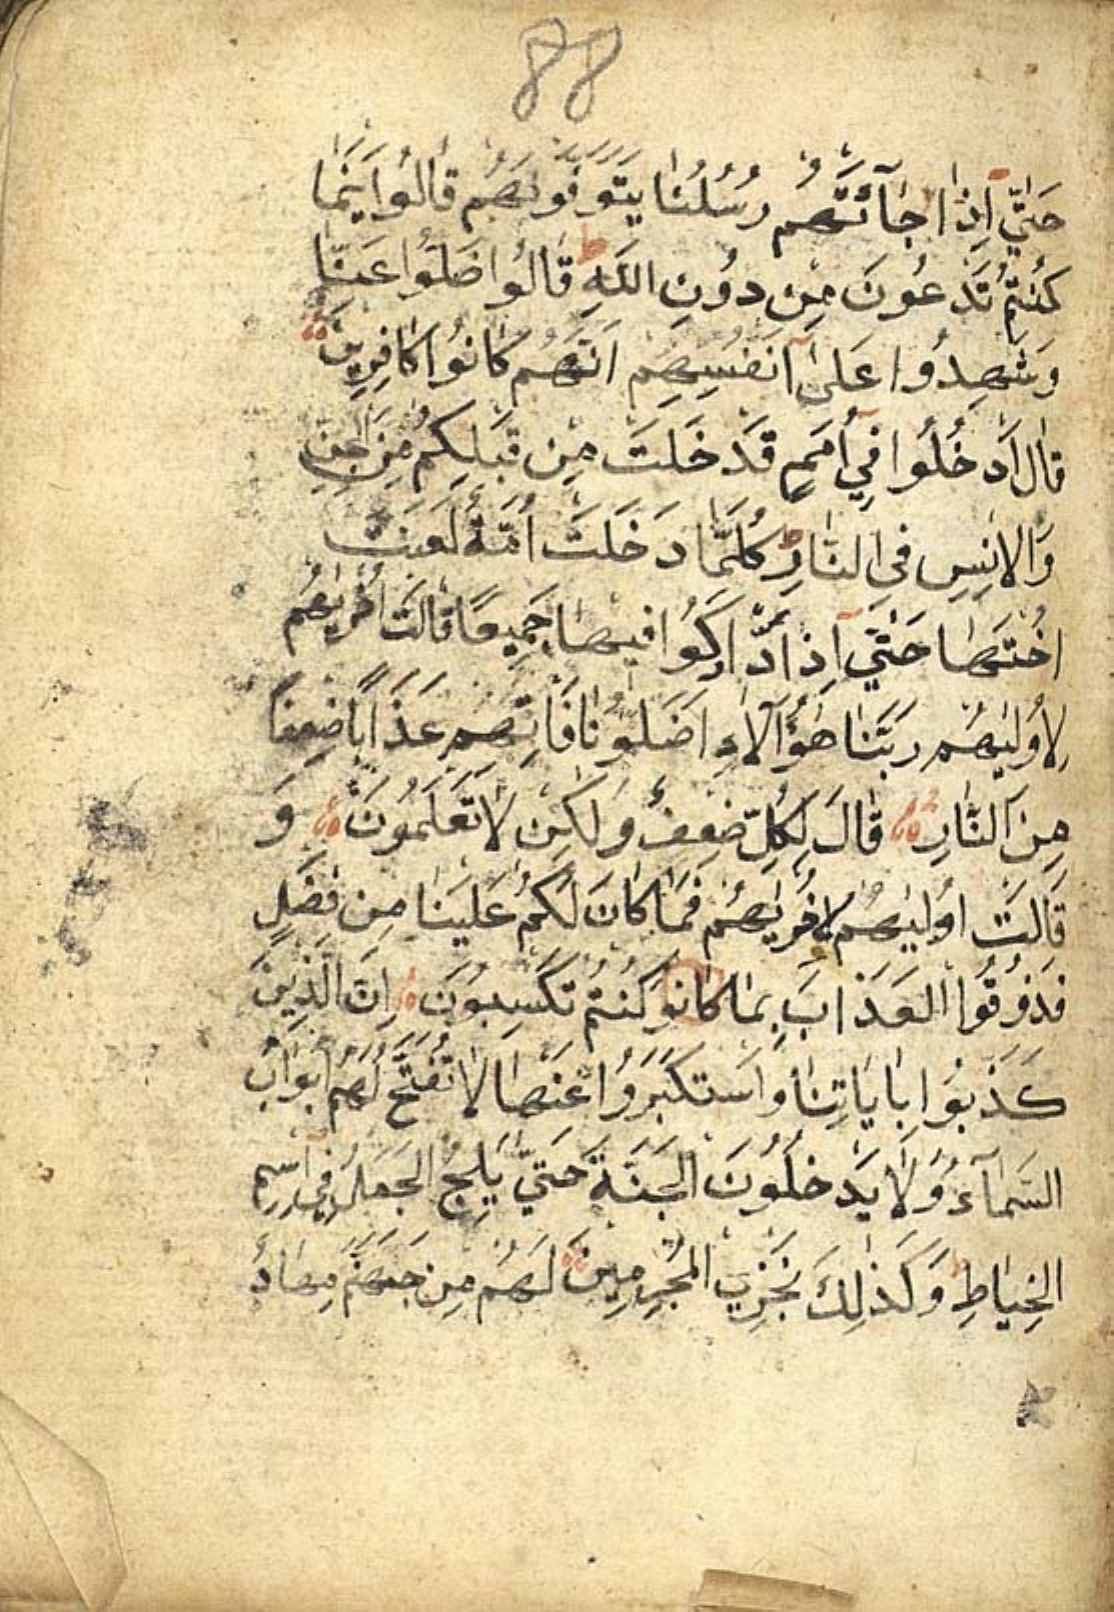 88
حَتّٰي اِذٰا جٰآئَتْهُم رُسُلُنٰا يَتَوَفَّوْنَهُم قٰالُوا اَيْنَمٰا
كُنْتُمْ تَدْعُونَ مِن دُوْنِ اللهِ ط قٰالُوا ضَلُّوا عَنّٰا
وَشَهِدُوا عَلٰى اَنفُسِهِم اَنَّهُم كٰانُوا كٰافِرِينَ
قٰالَ اَدْخُلُوا فِي اُمَمٍ قَدْ خَلَتْ مِن قَبْلِكُم مِنَ الْجِنِّ
وَالاِنسِ فِي النّٰارِ ط كُلَّمٰا دَخَلَتْ اُمَّةٌ لَعَنَتْ
اُخْتَهٰا حَتّٰي اِذا ادّٰارَكُوا فيهٰا جَمِيعًا قٰالَتْ اُخْرٰيهُم
لِاُوْلٰيهُم رَبَّنٰا هٰؤُآلاءِ اَضَلُّونٰا فَاٰتِهِم عَذٰابًا ضِعفًا
مِنَ النّٰارِ قٰالَ لِكُلٍّ ضِعِفٌ وَلٰكِن لٰا تَعْلَمُونَ وَ
قٰالَتْ اُوْلٰيهُم لِاُخْرٰيهُم فَمٰا كٰانَ لَكُمْ عَلَيْنٰا مِن فَضْلٍ
فَذُوْقُوا الْعَذٰابَ بِمٰا كٰانو كُنْتُمْ تَكْسِبُونَ اِنَّ الَّذِينَ
كَذَّبُوا بِاٰيٰاتِنٰا وَاسْتَكْبَرُوا عَنْهٰا لٰا تُفَتَّحُ لَهُمْ اَبْوٰابُ
السَّمٰآءِ وَلٰا يَدْخُلُونَ الْجَنَّةَ حَتّٰي يَلِجَ الْجَمَلُ فِي سَمِّ
الْخِيٰاطِ ط وَكَذٰلِكَ نَجْزِي الْمُجْرِمِينَ لَهُمْ مِن جَهَنَّمَ مِهٰادٌ